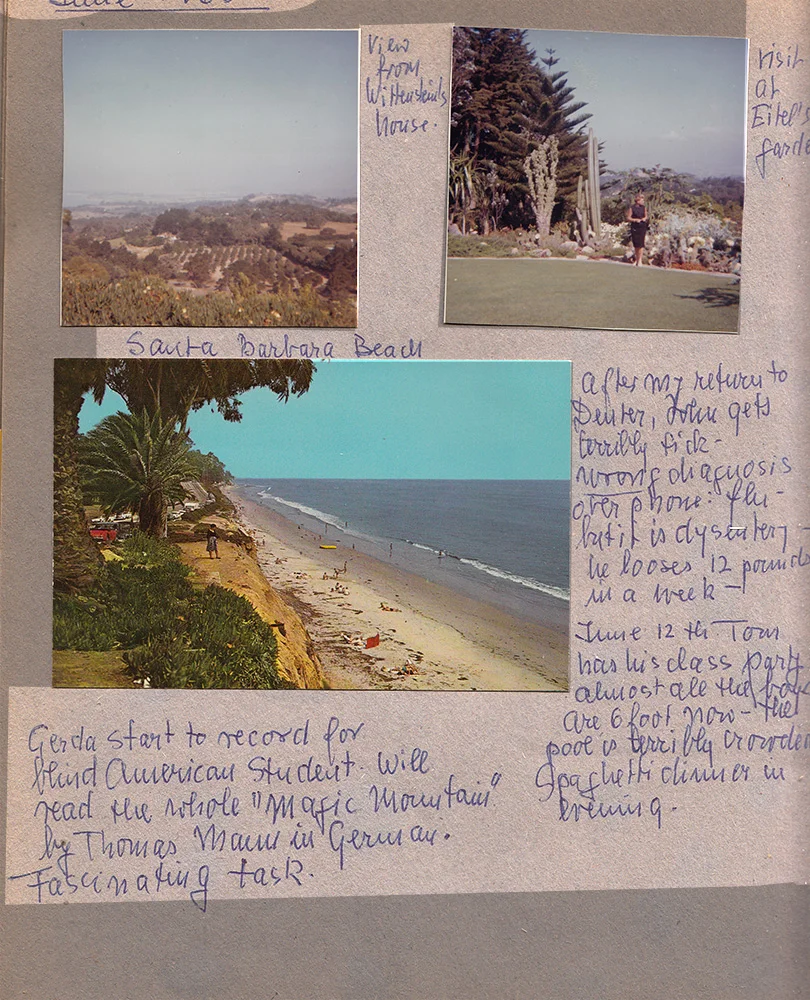 View
from
Wittensteins
house.
visit
at
Eitel's
garde
Santa Barbara Beach
after my return to
Denver, John gets
terribly sick -
wrong diagnosis
over phone: flu -
but it is dysentery -
he looses 12 pounds
in a week -
June 12 th Tom
has his class party
almost all the boys
are 6 foot now - the
pool is terribly crowded
Spaghetti dinner in
evening.
Gerda start to record for
blind American Student. Will
read the whole "Magic Mountain"
by Thomas Mann in German.
Fascinating task.